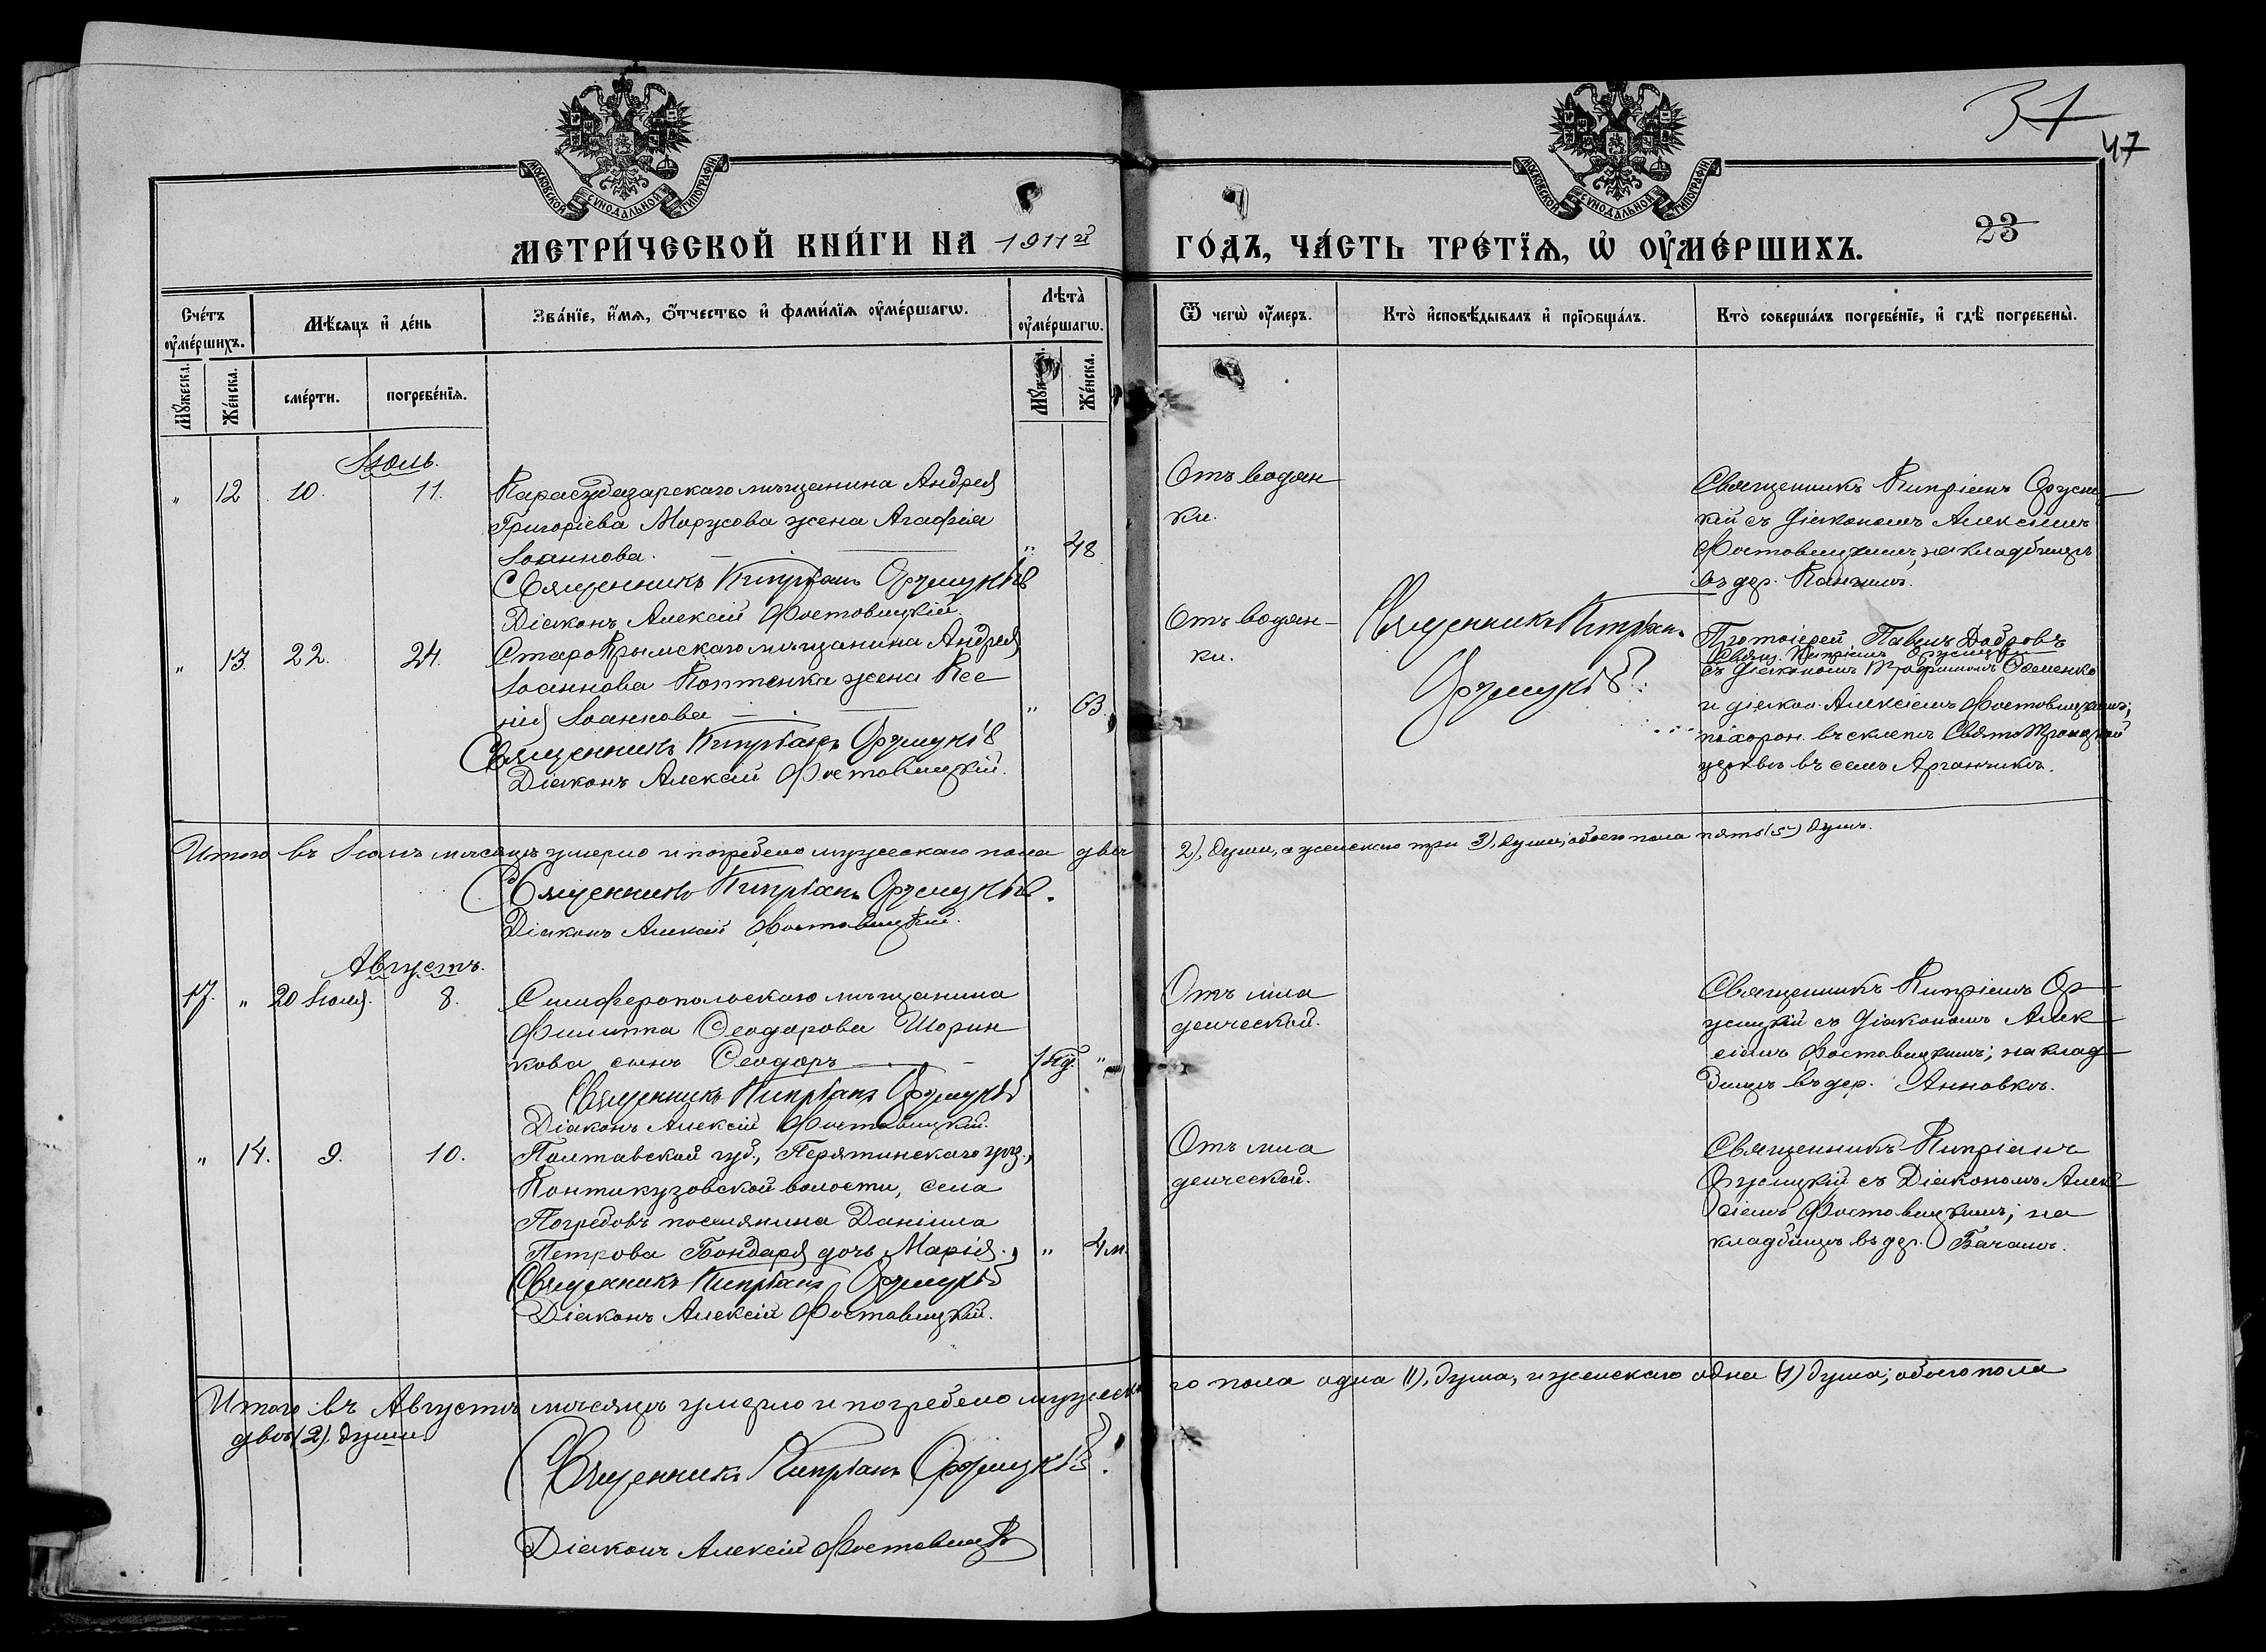 37
47
23
МОСКОВСКОЙ СѴНОДАЛЬНОЙ ТИПОГРАФІИ
МОСКОВСКОЙ СѴНОДАЛЬНОЙ ТИПОГРАФІИ
МЕТРИ́ЧЕСКОЙ КНИ́ГИ НА 1911й
ГО́ДЪ, ЧА́СТЬ ТРЕ́ТЇѦ, Ѡ҆ ОУ҆МЕ́РШИХЪ.
Сче́тъ оу҆ме́ршихъ.
Мꙋ́жеска.
Же́нска.
Мѣ́сяцъ и҆ де́нь
сме́рти.
погребе́нїѧ.
Зва́нїе, и҆́мѧ, ѻ҆́тчество и҆ фами́лїѧ оу҆ме́ршагѡ.
Лѣта̀ оу҆ме́ршагѡ.
Же́нска.
Ѿ чегѡ̀ оу҆́меръ.
Кто̀ и҆сповѣ́дывалъ и҆ прїѡбща́лъ.
Кто̀ соверша́лъ погребе́нїе, и҆ гдѣ̀ погребены̀.
Іюль.
" 12 10. 11.
Карасубазарскаго мѣщанина Андрея
Григоріева Марусова жена Агафія
Іоаннова. " 48
Священникъ Кипріанъ Оружицкій
Діаконъ Алексій Фостовицкій.
Отъ водян
ки.
Священникъ Кипріанъ Оружиц
кій съ діакономъ Алексіемъ
Фостовицкимъ, на кладбищѣ
въ дер.
" 13. 22. 24.
СтароКрымскаго мѣщанина Андрея
Іоаннова Коптенка жена Ксе
нія Іоаннова " 63.
Священникъ Кипріанъ Оружицкій
Діаконъ Алексій Фостовицкій.
Отъ водян-
ки.
Священникъ Кипріанъ
Оружицкій.
Протоіерей Павелъ Добровъ
Свящ. Кипріанъ Оружицкій
съ діакономъ Трофимомъ
и діакон. Алексіемъ Фостовицкимъ;
похорон. въ склепѣ Свято Троицкой
церкви въ селѣ Арганчикъ.
Итого въ Іюлѣ мѣсяцѣ умерло и погребено мужескаго пола двѣ 2), души, а женскаго три 3), души; обоего пола пять (5) душъ.
Священникъ Кипріанъ Оружицкій.
Діаконъ Алексій Фостовицкій.
Августъ.
17. " 20 Іюля. 8.
Симферопольскаго мѣщанина
Филиппа Ѳеодорова Шорин
кова сынъ Ѳеодоръ 1 год. "
Священникъ Кипріанъ Оружицкій
Діаконъ Алексій Фостовицкій.
Отъ мла
денческой.
Священникъ Кипріанъ Ор
ужицкій съ діакономъ Алек
сіемъ Фостовицкимъ; на клад
бищѣ въ дер. Анновкѣ.
" 14. 9. 10.
Полтавской губ., Пирятинскаго уѣз.,
Кантакузовской волости, села
Погребовъ поселянина Даніила
Петрова Бондаря дочь Марія. " 4 м.
Священникъ Кипріанъ Оружицкій
Діаконъ Алексій Фостовицкій.
Отъ мла
денческой.
Священникъ Кипріанъ
Оружицкій съ Діакономъ Алек
сіемъ Фостовицкимъ; на
кладбищѣ въ дер.
Итого: въ Августѣ мѣсяцѣ умерло и погребено мужеска го пола одна 1), душа, и женскаго одна (1) душа; обоего пола
двѣ (2) души.
Священникъ Кипріанъ Оружицкій.
Діаконъ Алексій Фостовицкій